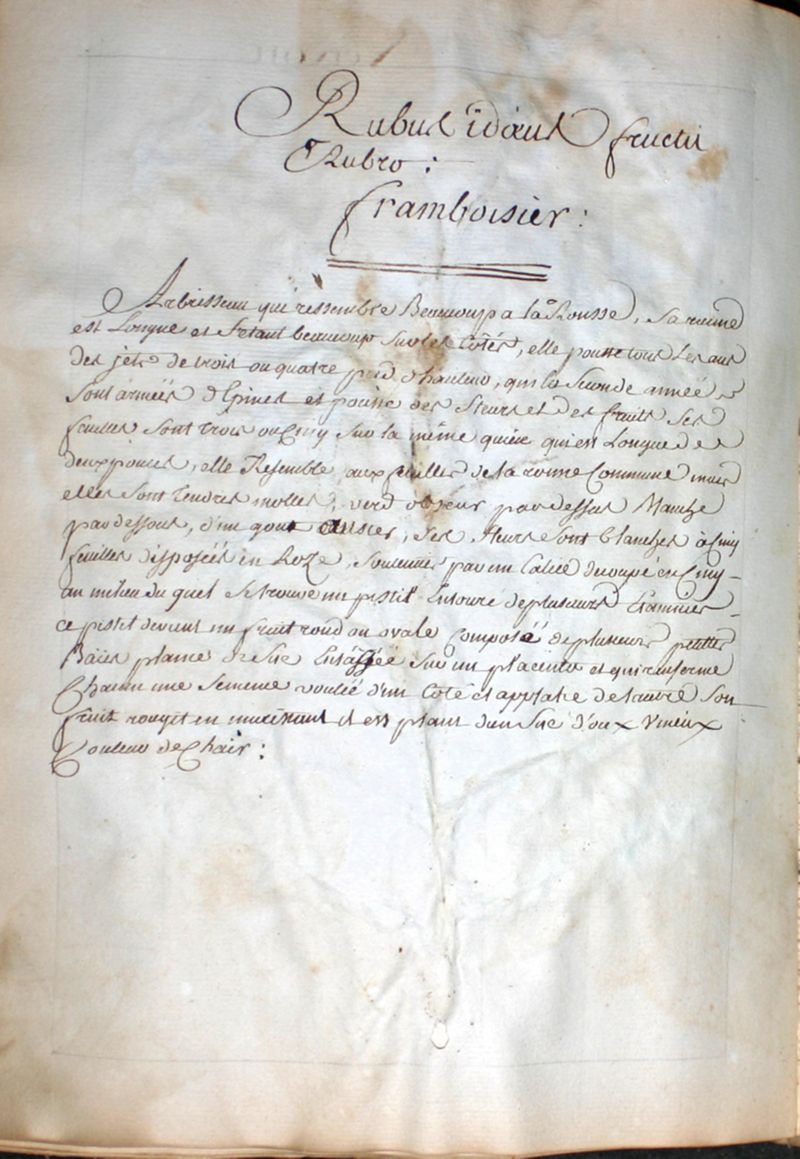 Rubus idæus fructu
Rubro :
framboisier :
Arbrisseau qui ressemble Beaucoup a la Rousse, sa racine
est Longue et setant beaucoup sur les Cotés, elle pousse tous Les ans
des jets de trois ou quatre pied d'hauteur, qui la seconde année
sont armées d'Epines et pousse des fleurs et des fruits ses
feuilles sont trois ou Cinq sur la même queüe qui est Longue de
deux pouces, elle Resemble aux feuilles de la ronne Commune mais
elles sont tendres molles, verd obscur par dessus Blanche
par dessous, d'un gout austere, ses fleurs sont blanches à Cinq
feuilles disposées en Roze, soutenues par un Calice decoupé en Cinq
au milieu du quel se trouve un pistil Entouré de plusieurs Etamines
ce pistil devient un fruit rond ou ovale Composé de plusieurs petites
Baïes plaine de suc Entassée sur un placenta et qui renferme
Chacun une semence d'un Coté et applatie de l'autre son
fruit rougit en murissant il est plaint d'un suc d'oux Vineux
Couleur de Chair :